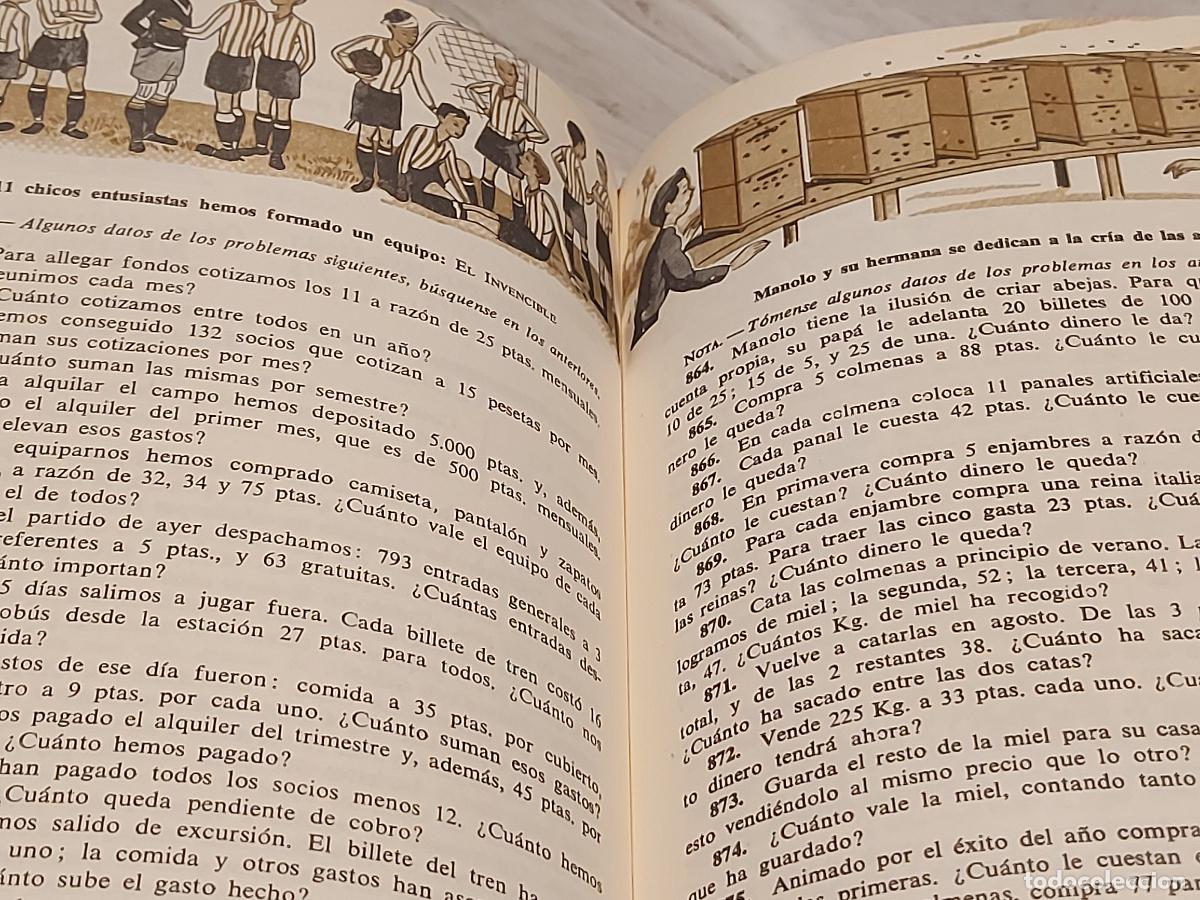 11 chicos entusiastas hemos formado un equipo: EL INVENCIBLE
— Algunos datos de los problemas siguientes, búsquense en los anteriores.
Para allegar fondos cotizamos los 11 a razón de 25 ptas. mensuales.
eunimos cada mes?
Cuánto cotizamos entre todos en un año?
emos conseguido 132 socios que cotizan a 15 pesetas por mes.
man sus cotizaciones por mes?
uánto suman las mismas por semestre?
a alquilar el campo hemos depositado 5.000 ptas. y, además,
o el alquiler del primer mes, que es de 500 ptas. mensuales.
elevan esos gastos?
equiparnos hemos comprado camiseta, pantalón y zapatos
, a razón de 32, 34 y 75 ptas. ¿Cuánto vale el equipo de cada
el de todos?
el partido de ayer despachamos: 793 entradas generales a 3
referentes a 5 ptas., y 63 gratuitas. ¿Cuántas entradas des-
ánto importan?
5 días salimos a jugar fuera. Cada billete de tren costó 16
obús desde la estación 27 ptas. para todos. ¿Cuánto nos
ida?
stos de ese día fueron: comida a 35 ptas. por cubierto,
tro a 9 ptas. por cada uno. ¿Cuánto suman esos gastos?
os pagado el alquiler del trimestre y, además, 45 ptas. por
¿Cuánto hemos pagado?
han pagado todos los socios menos 12. ¿Cuánto hemos
¿Cuánto queda pendiente de cobro?
mos salido de excursión. El billete del tren ha
uno; la comida y otros gastos han
ánto sube el gasto hecho?
Manolo y su hermana se dedican a la cría de las a
NOTA. — Tómense algunos datos de los problemas en los an
864. Manolo tiene la ilusión de criar abejas. Para qu
cuenta propia, su papá le adelanta 20 billetes de 100
10 de 25; 15 de 5, y 25 de una. ¿Cuánto dinero le da?
865. Compra 5 colmenas a 88 ptas. ¿Cuánto le cu
nero le queda?
866. En cada colmena coloca 11 panales artificiales
867. Cada panal le cuesta 42 ptas. ¿Cuánto le cue
dinero le queda?
868. En primavera compra 5 enjambres a razón d
¿Cuánto le cuestan? ¿Cuánto dinero le queda?
869. Para cada enjambre compra una reina italia
ta 73 ptas. Para traer las cinco gasta 23 ptas. ¿Cuá
las reinas? ¿Cuánto dinero le queda?
870. Cata las colmenas a principio de verano. La
logramos de miel; la segunda, 52; la tercera, 41; l
ta, 47. ¿Cuántos Kg. de miel ha recogido?
871. Vuelve a catarlas en agosto. De las 3 p
total, y de las 2 restantes 38. ¿Cuánto ha saca
¿Cuánto ha sacado entre las dos catas?
872. Vende 225 Kg. a 33 ptas. cada uno. ¿Cuá
to dinero tendrá ahora?
873. Guarda el resto de la miel para su casa
esto vendiéndolo al mismo precio que lo otro?
874. ¿Cuánto vale la miel, contando tanto
que ha guardado?
875. Animado por el éxito del año compra
primeras. ¿Cuánto le cuestan
compra 77 pan
todocoleccion